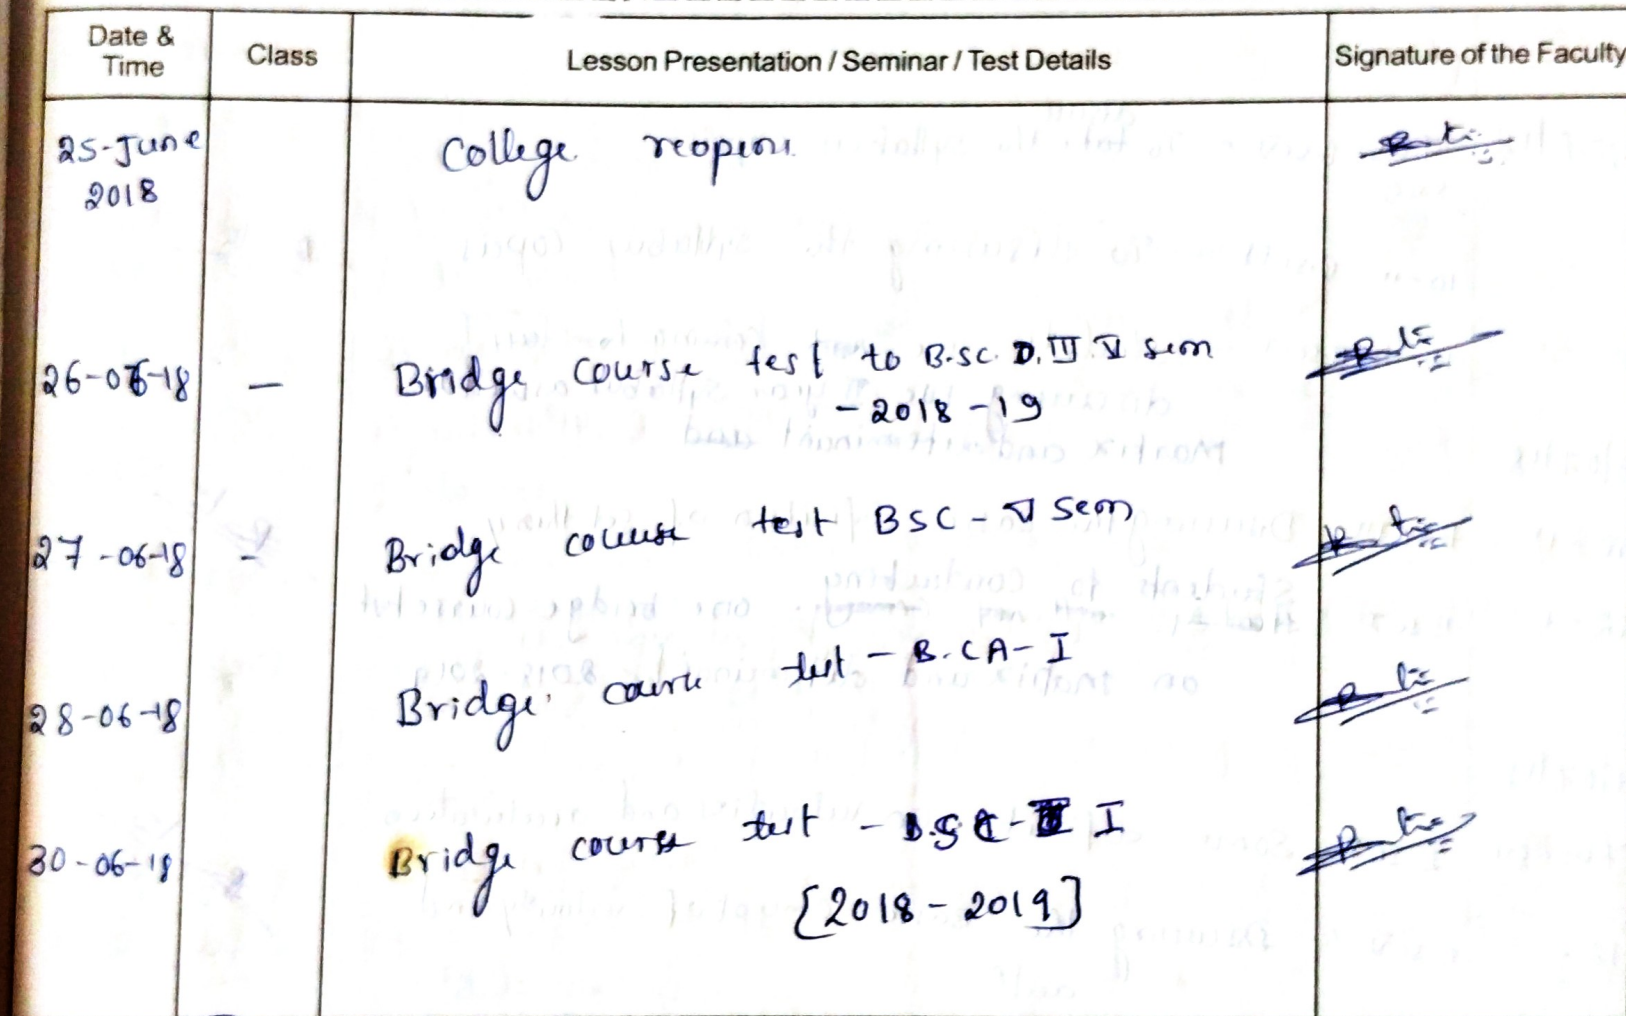 Date & Time Class Lesson Presentation / Seminar / Test Details Signature of the Faculty
25-June 2018 College reopens
26-06-18 - Bridge course test to B.sc. III V sem
- 2018 - 19
27-06-18 - Bridge course test BSC - V Sem
28-06-18 Bridge course test - B.CA - I
30-06-18 Bridge course test - I
[2018 - 2019]